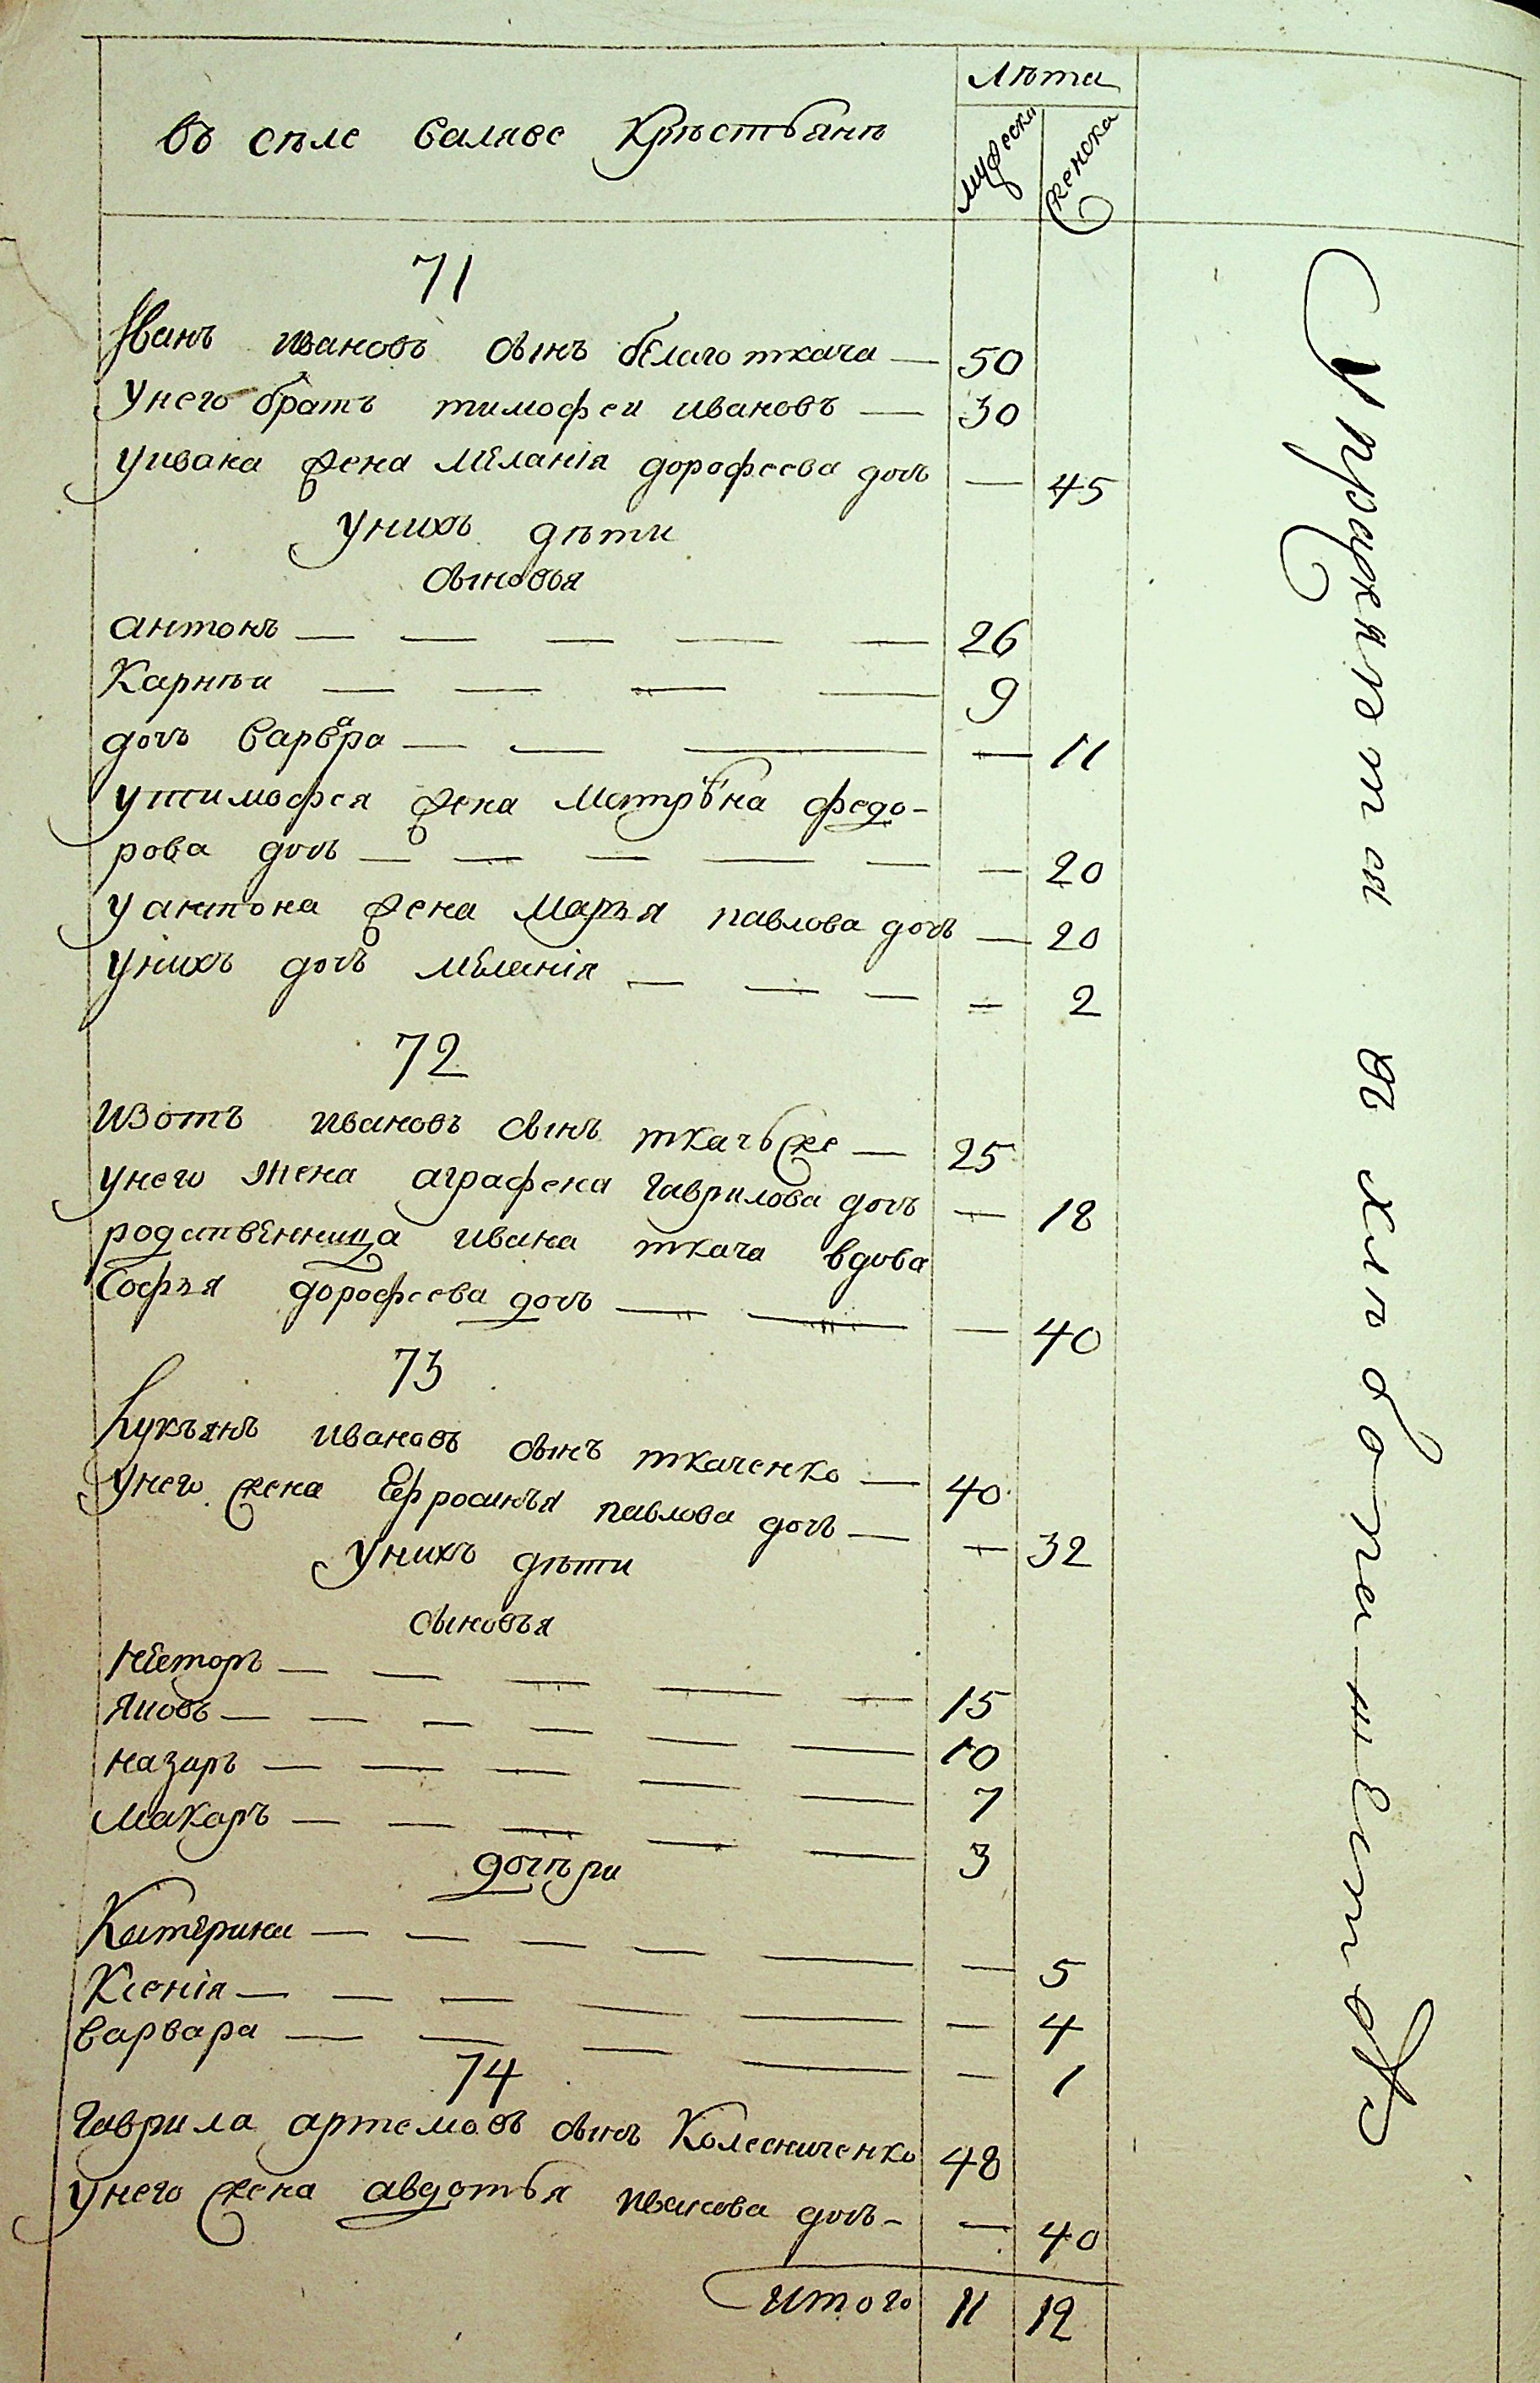 Въ селе Валяве Крѣстьянѣ
Лѣта
мужеска
женска
71
Іванъ ивановъ сынъ белаго ткача — 50
Унего братъ тимофеи ивановъ — 30
уивана жена меланія дорофеева дочъ — 45
Унихъ дѣти
сыновья
антонъ — 26
Карнѣи — 9
дочъ варвара — 11
утимофея жена Мотрына федо-
рова дочъ — 20
уантона жена Маръя павлова дочъ — 20
унихъ дочъ меланія — 2
72
Изотъ ивановъ сынъ ткачъ же — 25
унего жена аграфена гаврилова дочъ — 18
родственница ивана ткача вдова
Софъя дорофеева дочъ — 40
73
Лукъянъ ивановъ сынъ ткаченко — 40
Унего жена Ефросинъя павлова дочъ — 32
Унихъ дѣти
сыновъя
несторъ — 15
Яковъ — 10
назаръ — 7
Макаръ — 3
дочѣри
Катерина — 5
Ксенія — 4
варвара — 1
74
Гаврила артемовъ сынъ Колесниченко 48
унего жена авдотья иванова дочъ — 40
итого 11 12
Упражняютси въ хлебопашестве